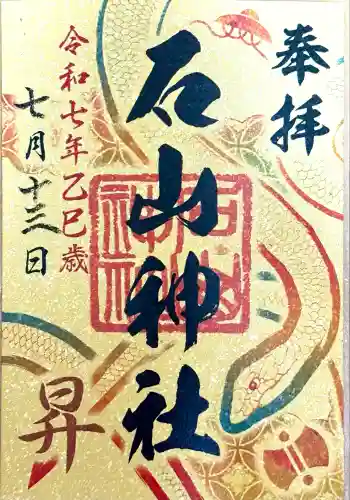 奉拝
石山神社
令和七年乙巳歳
七月十三日
昇
石山
神社